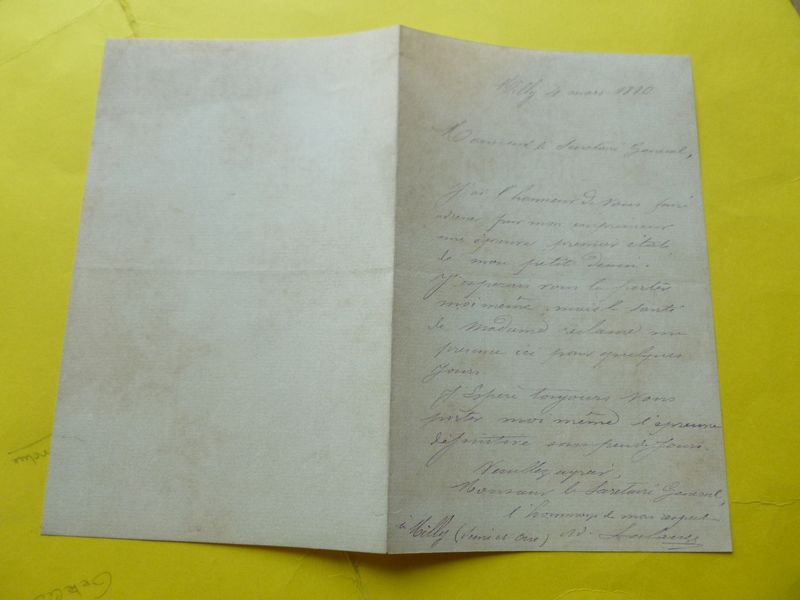 Milly 4 mars 1890
Monsieur le Secretaire General,
J'ai l'honneur de vous faire
adresser par mon imprimeur
une épreuve premier état
de mon petit dessin.
J'esperais vous la porter
moi même, mais la santé
de Madame réclame ma
presence ici pour quelques
jours.
J'espère toujours vous
porter moi même l'épreuve
définitive sous peu de jours.
Veuillez agréer
Monsieur le Secretaire General,
l'hommage de mon respect
à Milly (Seine et Oise) Ad.